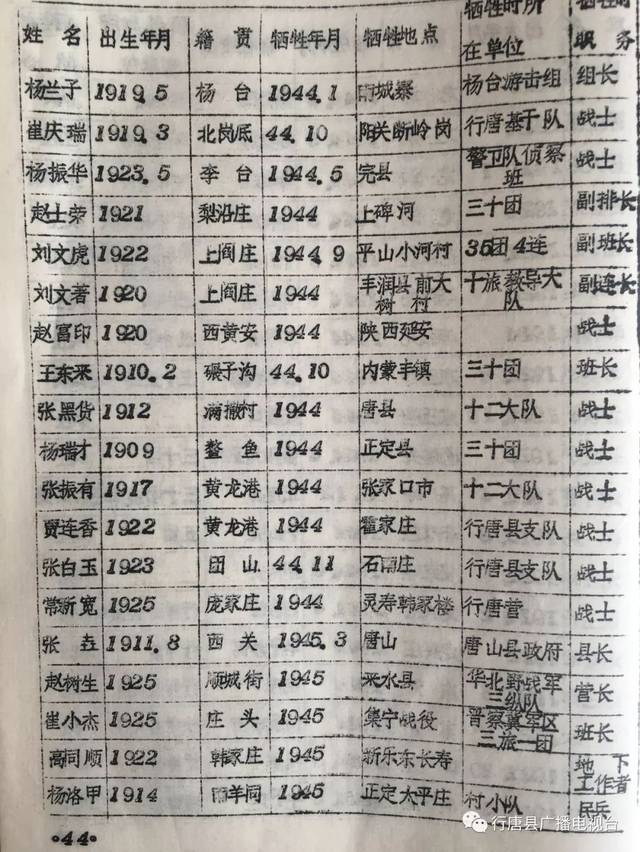 姓名 出生年月 籍贯 牺牲年月 牺牲地点 牺牲时所在单位 牺牲时职务
杨兰子 1919.5 杨台 1944.1 南城寨 杨台游击组 组长
崔庆瑞 1919.3 北岗底 44.10 阳关断岭岗 行唐基干队 战士
杨振华 1923.5 李台 1944.5 完县 警卫队侦察班 战士
赵士荣 1921 梨沿庄 1944 上碑河 三十团 副排长
刘文虎 1922 上阎庄 1944.9 平山小河村 35团4连 副班长
刘文著 1920 上阎庄 1944 丰润县前大树村 十旅教导大队 副连长
赵富印 1920 西黄安 1944 陕西延安 战士
王东来 1910.2 碾子沟 44.10 内蒙丰镇 三十团 班长
张黑货 1912 满撒村 1944 唐县 十二大队 战士
杨瑞才 1909 鳌鱼 1944 正定县 三十团 战士
张振有 1917 黄龙港 1944 张家口市 十二大队 战士
贾连香 1922 黄龙港 1944 霍家庄 行唐县支队 战士
张白玉 1923 团山 44.11 石 庄 行唐县支队 战士
常新宽 1925 庞家庄 1944 灵寿韩家楼 行唐营 战士
张垚 1911.8 西关 1945.3 唐山 唐山县政府 县长
赵树生 1925 顺城街 1945 涞水县 华北野战军三纵队 营长
崔小杰 1925 庄头 1945 集宁战役 晋察冀军区三旅一团 班长
高同顺 1922 韩家庄 1945 新乐东长寿 地下工作者
杨洛甲 1914 羊同 1945 正定太平庄 村小队 民兵
•44•
行唐县广播电视台